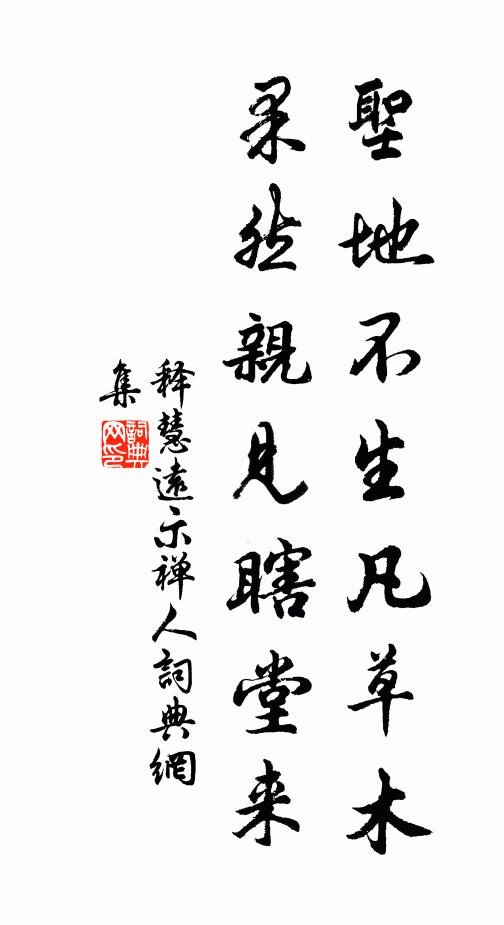 聖地不生凡草木
果然親見瞎堂来
释慧遠示禅人詞典網
集
詞典网印